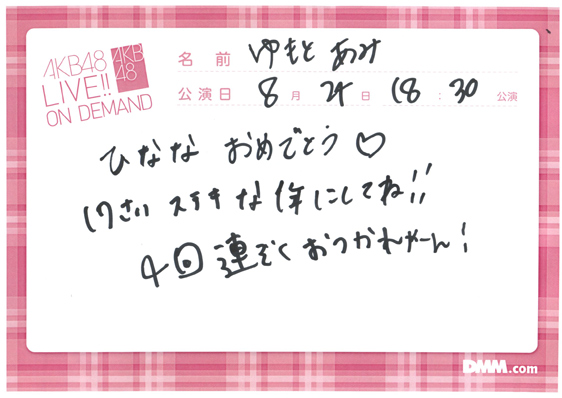 AKB48
LIVE!!
ON DEMAND
AKB
48
名前 ゆもと あみ
公演日 8月24日 18:30公演
ひなな おめでとう♡
17さい ステキな1年にしてね!!
4回連ぞくおつかれやーん!
DMM.com